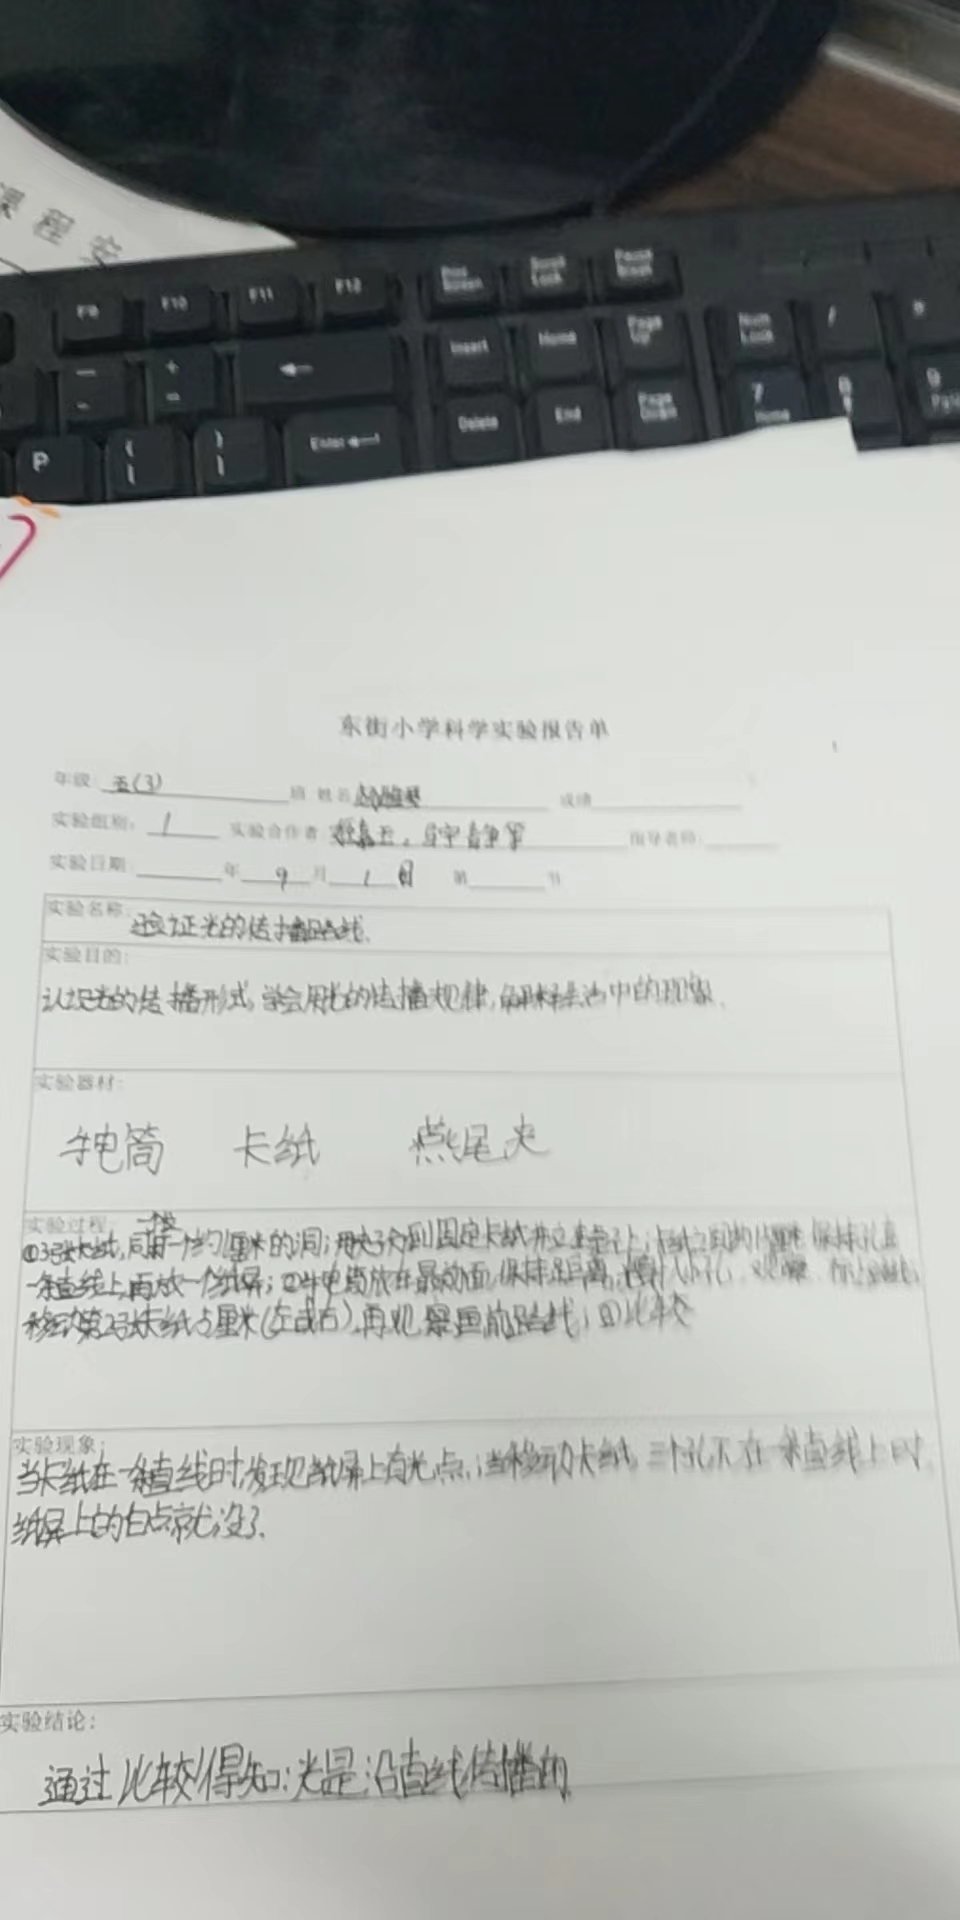 课程安
F9 F10 F11 F12 Print Screen Scroll Lock Pause Break
Insert Home Page Up Num Lock /
Delete End Page Down 7 Home 8 9
P Enter
东街小学科学实验报告单
年级: 五(3) 班 姓名 成绩
实验组别: 1 实验合作者 指导老师:
实验日期: 年 9 月 1 日 第 节
实验名称: 验证光的传播路线.
实验目的:
认识光的传播形式, 学会用光的传播规律, 解释生活中的现象.
实验器材:
手电筒 卡纸 燕尾夹
实验过程:
①3张卡纸, 同一个约1厘米的洞; 用夹子分别固定卡纸并立在桌子上; 保持孔在
一条直线上, 再放一个纸屏; ②手电筒放在最前面, 保持距离,
移动第2张卡纸5厘米(左或右), 再观察
实验现象:
当卡纸在一条直线时, 发现纸屏上有光点, 当移动卡纸, 三个孔不在一条直线上时,
纸屏上的白点就没了.
实验结论:
通过比较得知: 光是沿直线传播的.